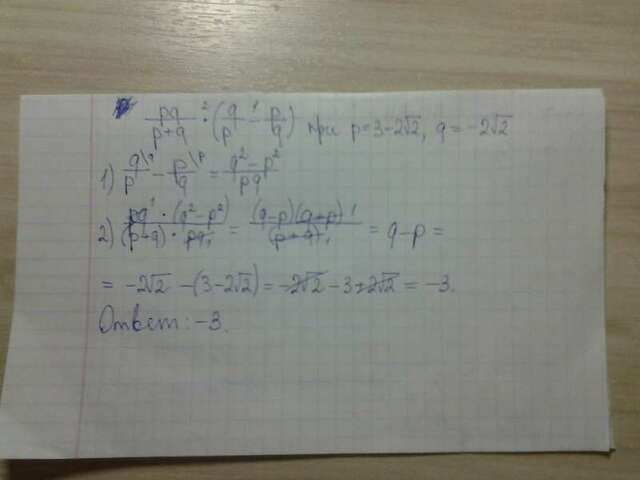 pq/(p+q) ² · (q/p ¹ − p/q) при p=3−2√2, q=−2√2
1) q\q/p − p\p/q = (q²−p²)/pq
2) pq¹·(q²−p²)/((p+q)·pq₁) = (q−p)(q+p)¹/(p+q)₁ = q−p =
= −2√2 −(3−2√2) = −2√2 −3+2√2 = −3.
Ответ: −3.